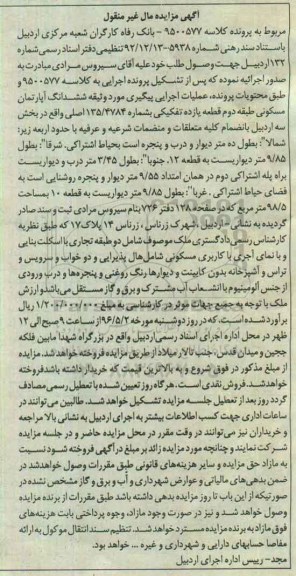 آگهی مزایده مال غیر منقول
مربوط به پرونده کلاسه ۹۵۰۰۵۷۷ - بانک رفاه کارگران شعبه مرکزی اردبیل
باستناد سند رهنی شماره ۵۹۳۸-۹۲/۱۲/۱۳ تنظیمی دفتر اسناد رسمی شماره
۱۳۲ اردبیل جهت وصول طلب خود علیه آقای سیروس مرادی مبادرت به
صدور اجرائیه نموده که پس از تشکیل پرونده اجرایی به کلاسه ۹۵۰۰۵۷۷ و
طبق محتویات پرونده، عملیات اجرایی پیگیری مورد وثیقه ششدانگ آپارتمان
مسکونی طبقه دوم قطعه یازده تفکیکی بشماره ۱۳۵/۴۷۸۴ اصلی واقع در بخش
سه اردبیل بانضمام کلیه متعلقات و منضمات شرعیه و عرفیه با حدود اربعه زیر:
شمالا": بطول ده متر دیوار و درب و پنجره است بحیاط اشتراکی. شرقا": بطول
۹/۸۵ متر دیواریست به قطعه ۱۲. جنوبا": بطول ۲/۴۵ متر درب و دیواریست
براه پله اشتراکی دوم در همان امتداد ۹/۵۵ متر دیوار و پنجره روشنایی است به
فضای حیاط اشتراکی. غربا": بطول ۹/۸۵ متر دیواریست به قطعه ۱۰ بمساحت
۹۸/۵ متر مربع که در صفحه ۱۲۸ دفتر ۷۷۴ بنام سیروس مرادی ثبت و سند صادر
گردیده به نشانی - اردبیل، شهرک زرناس، زرناس ۱۴ پلاک ۱۷ که طبق نظریه
کارشناس رسمی دادگستری ملک موصوف شامل دو طبقه تجاری با اسکلت بنایی
و با نمای آجری با کاربری مسکونی شامل هال پذیرایی و دو خواب و سرویس و
تراس و آشپزخانه بدون کابینت و دیوارها رنگ روغنی و پنجره‌ها و درب ورودی
از جنس آلومینیوم با انشعاب آب مشترک و برق و گاز مستقل می‌باشد و ارزش
ملک با توجه به جمیع جهات موثر در کارشناسی به مبلغ ۱/۲۰۰/۰۰۰/۰۰۰ ریال
برآورد شده است، که در روز دوشنبه مورخه ۹۶/۵/۲ از ساعت ۹ صبح الی ۱۲
ظهر در محل اداره اجرای اسناد رسمی اردبیل واقع در بزرگراه شهدا مابین فلکه
ججین و میدان قدس، جنب تالار میلاد از طریق مزایده فروخته خواهد شد. مزایده
از مبلغ مذکور در فوق شروع و به بالاترین قیمت که خریدار داشته باشد فروخته
خواهد شد. فروش نقدی است. هرگاه روز تعیین شده با تعطیل رسمی مصادف
گردد روز بعد از تعطیل جلسه مزایده تشکیل خواهد شد. طالبین می‌توانند در
ساعات اداری جهت کسب اطلاعات بیشتر به اجرای اردبیل به نشانی بالا مراجعه
و خریداران نیز می‌توانند در وقت مقرر در محل مزایده حاضر و در جلسه مزایده
شرکت نمایند و چنانچه مورد مزایده زائد بر مبلغ در آگهی فروخته شود نسبت
به مازاد حق مزایده و سایر هزینه‌های قانونی طبق مقررات وصول خواهد شد در
ضمن بدهی‌های مالیاتی و عوارض شهرداری و آب و برق و گاز مشخص نشده در
صورتیکه از این باب تا روز مزایده بدهی داشته باشد طبق مقررات از برنده مزایده
وصول خواهد شد و نیز در صورت وجود مازاد، وجوه پرداختی بابت هزینه‌های
فوق مازاد به برنده مزایده مسترد خواهد شد. تنظیم سند انتقال موکول به ارائه
مفاصا حسابهای دارایی و شهرداری و غیره ... خواهد بود.
مجد - رییس اداره اجرای اردبیل